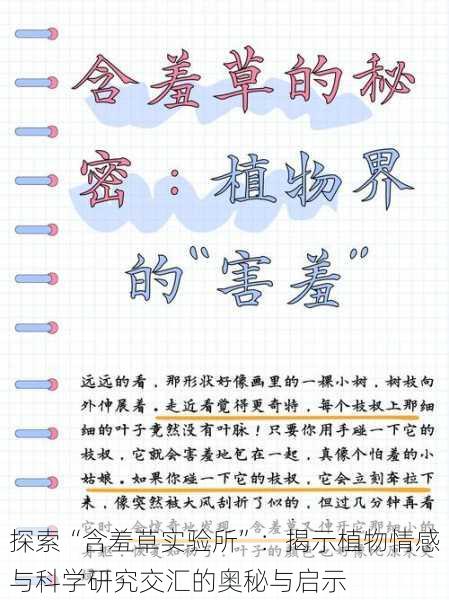 含羞草的秘
密：植物界
的“害羞”
远远的看，那形状好像画里的一棵小树，树枝向
外伸展着。走近看觉得更奇特，每个枝杈上那细
细的叶子竟然没有叶脉！只要你用手碰一下它的
枝杈，它就会害羞地包在一起，真像个怕羞的小
姑娘。如果你碰一下它的枝杈，它会立刻奔拉下
来，像突然被大风刮折了似的，但过几分钟再看
它时，会惊奇地发现，含羞草又伸开它那细小的
探索“含羞草实验所”：揭示植物情感
与科学研究交汇的奥秘与启示